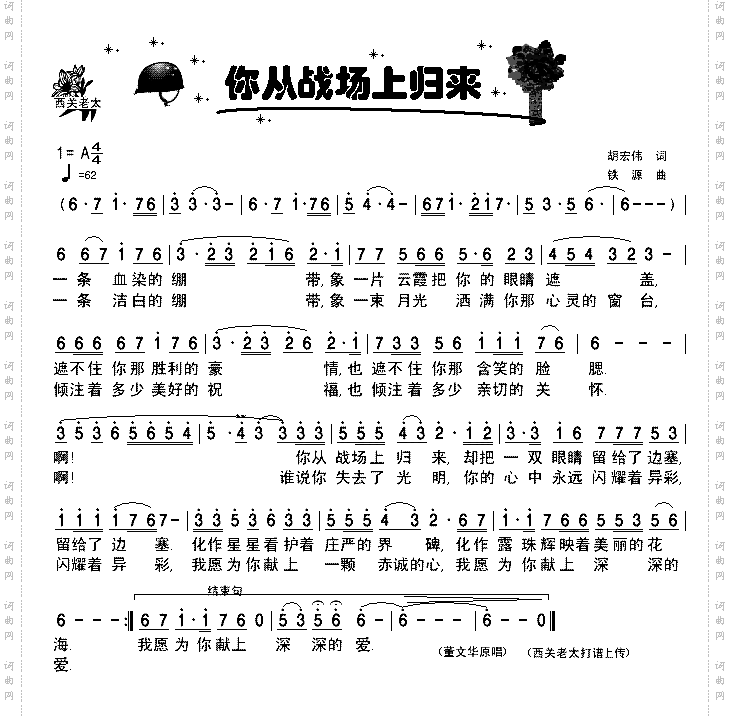 你从战场上归来
西关老太
1=A 4/4
♩=62
胡宏伟 词
铁源 曲
(6·7 1·76|3 3·3-|6·7 1·76|5 4·4-|671·217·|5 3·5 6·|6---)|
6 67 1 76|3·23 216|2·1|77 566 5·6 23|454 323-|
一条 血染的绷 带,象一片 云霞把你的眼睛遮 盖,
一条 洁白的绷 带,象一束 月光 洒满你那心灵的窗台,
666 67 1 76|3·23 26 2·1|733 56 111 76|6---|
遮不住你那胜利的豪 情,也遮不住你那含笑的脸 腮.
倾注着多少美好的祝 福,也倾注着多少亲切的关 怀.
353 6 5654|5·43 333|555 43 2·12|3·3 16 777 53|
啊! 你从战场上归来,却把一双眼睛留给了边塞,
啊! 谁说你失去了光明,你的心中永远闪耀着异彩,
111 1767-|335 3633|555 43 2·67|1·1 776553 56|
留给了边塞. 化作星星看护着庄严的界碑,化作露珠辉映着美丽的花
闪耀着异彩, 我愿为你献上一颗赤诚的心,我愿为你献上深深的
结束句
6---:‖67 1·1 760|53 56 6-|6---|6--0‖
海. 我愿为你献上 深深的爱.
爱.
(董文华原唱) (西关老太打谱上传)
词曲网